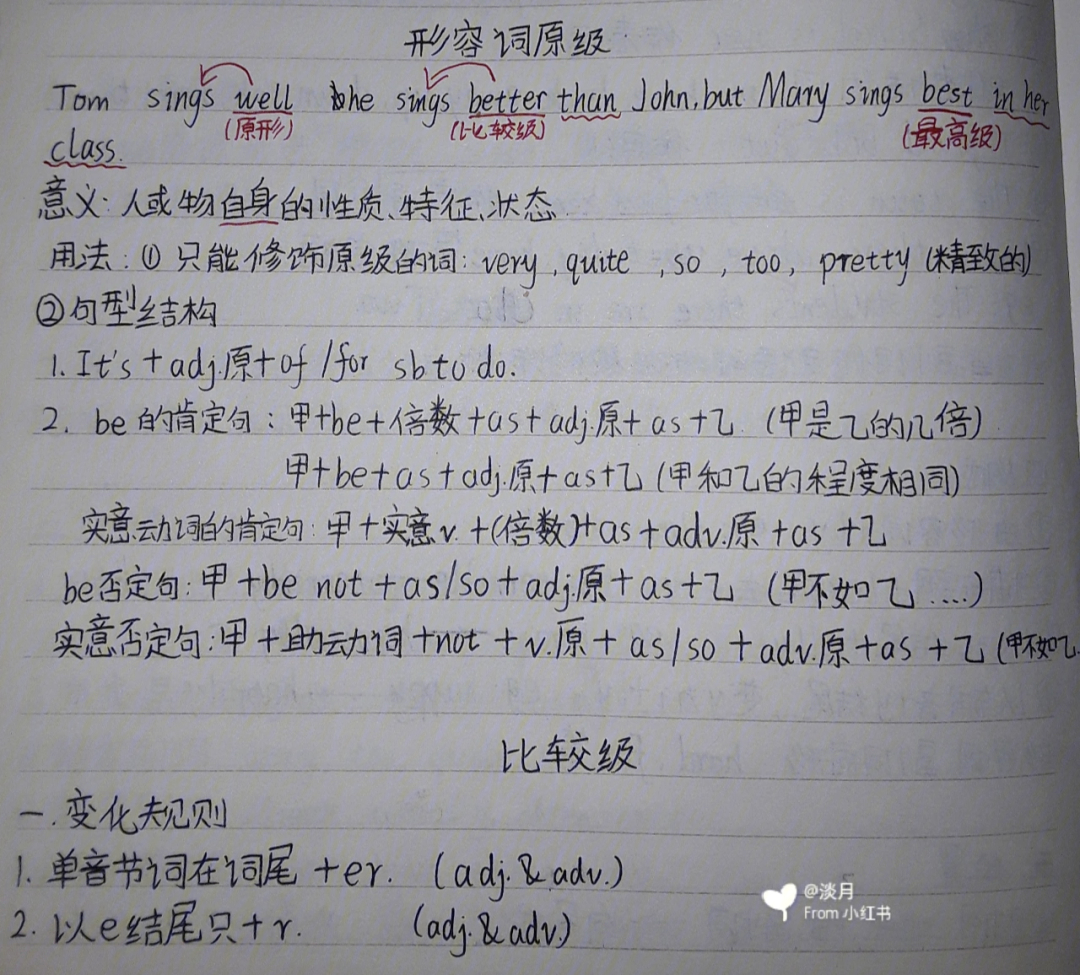 形容词原级
Tom sings well he sings better than John, but Mary sings best in her
(原形) (比较级) (最高级)
class.
意义:人或物自身的性质、特征、状态.
用法:① 只能修饰原级的词:very, quite, so, too, pretty (精致的)
②句型结构
1. It's + adj.原+ of /for sb to do.
2. be 的肯定句:甲+be+倍数+as+adj.原+ as +乙 (甲是乙的几倍)
甲+be+as+adj.原+as+乙 (甲和乙的程度相同)
实意动词的肯定句:甲+实意v.+(倍数)+as+adv.原+as+乙
be否定句:甲+be not + as/so + adj.原+as+乙 (甲不如乙....)
实意否定句:甲+助动词+not + v.原+ as/so + adv.原+as +乙 (甲不如乙
比较级
一.变化规则
1. 单音节词在词尾 +er. (adj.&adv.)
2. 以e结尾只+r. (adj.&adv.)
@淡月
From 小红书